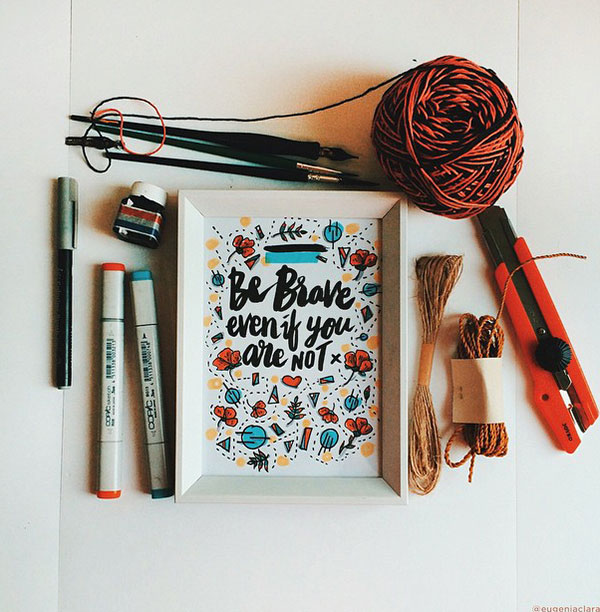 Be Brave
even if you
are NOT x
COPIC
COPIC
JOYKO
@eugeniaclara